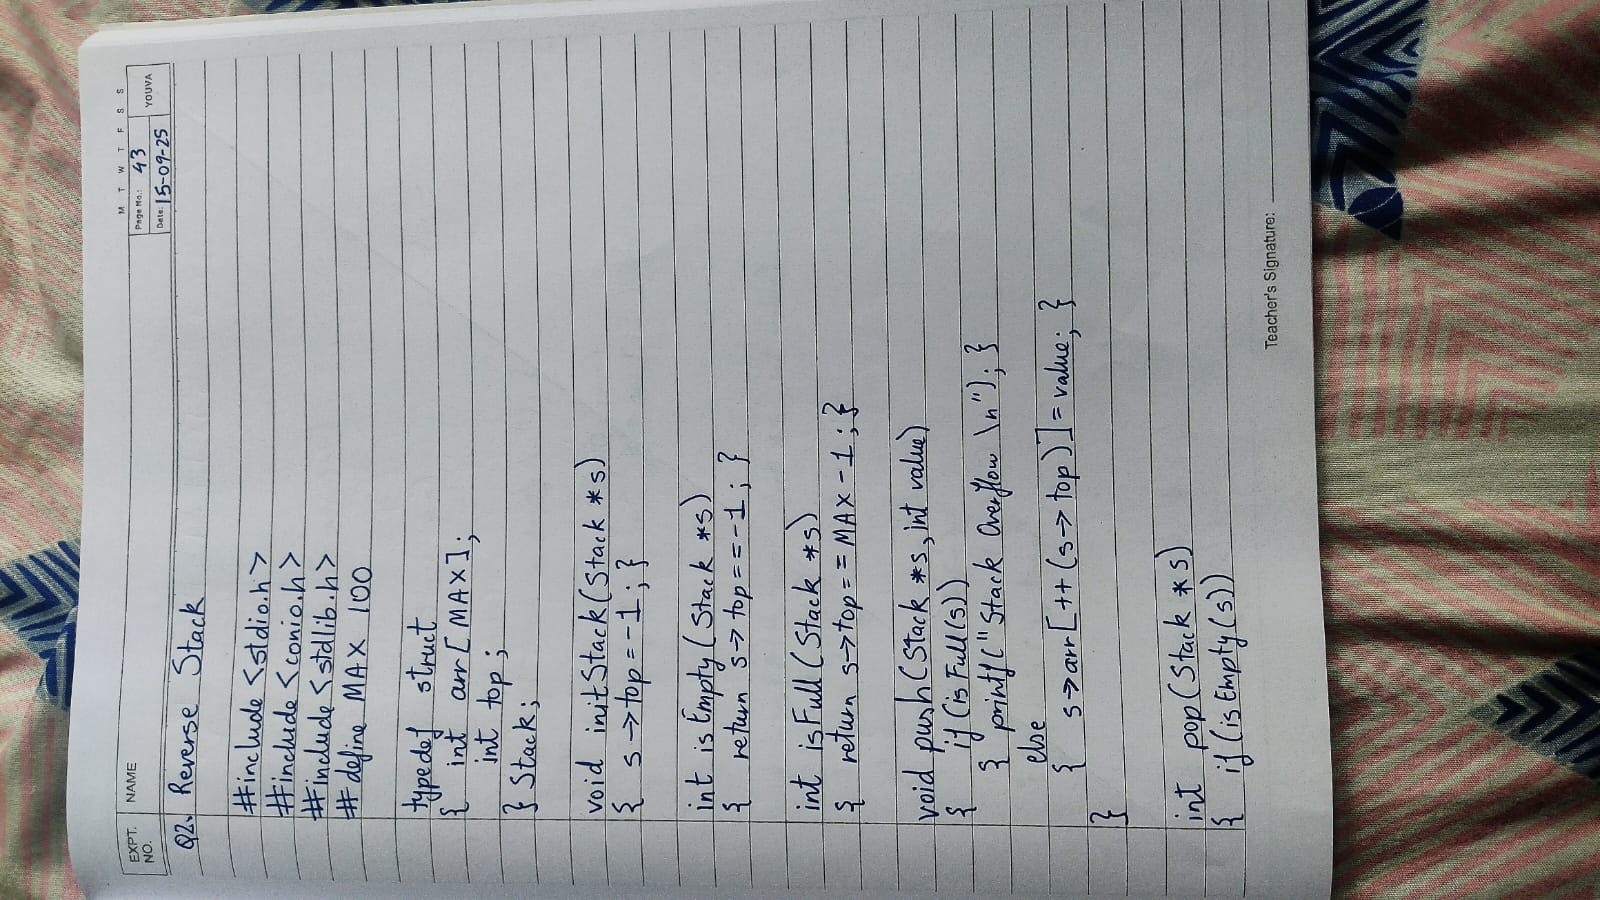 M T W T F S S
EXPT. NO. NAME Page No.: 43 YOUVA
Date: 15-09-25
Q2. Reverse Stack
#include <stdio.h>
#include <conio.h>
#include <stdlib.h>
# define MAX 100
typedef struct
{ int arr[MAX];
int top;
} Stack;
void initStack(Stack *s)
{ s->top=-1; }
int isEmpty(Stack *s)
{ return s->top==-1; }
int isFull(Stack *s)
{ return s->top==MAX-1; }
void push(Stack *s, int value)
{ if(isFull(s))
{ printf("Stack Overflow \n"); }
else
{ s->arr[++(s->top)]=value; }
}
int pop(Stack *s)
{ if(isEmpty(s))
Teacher's Signature: